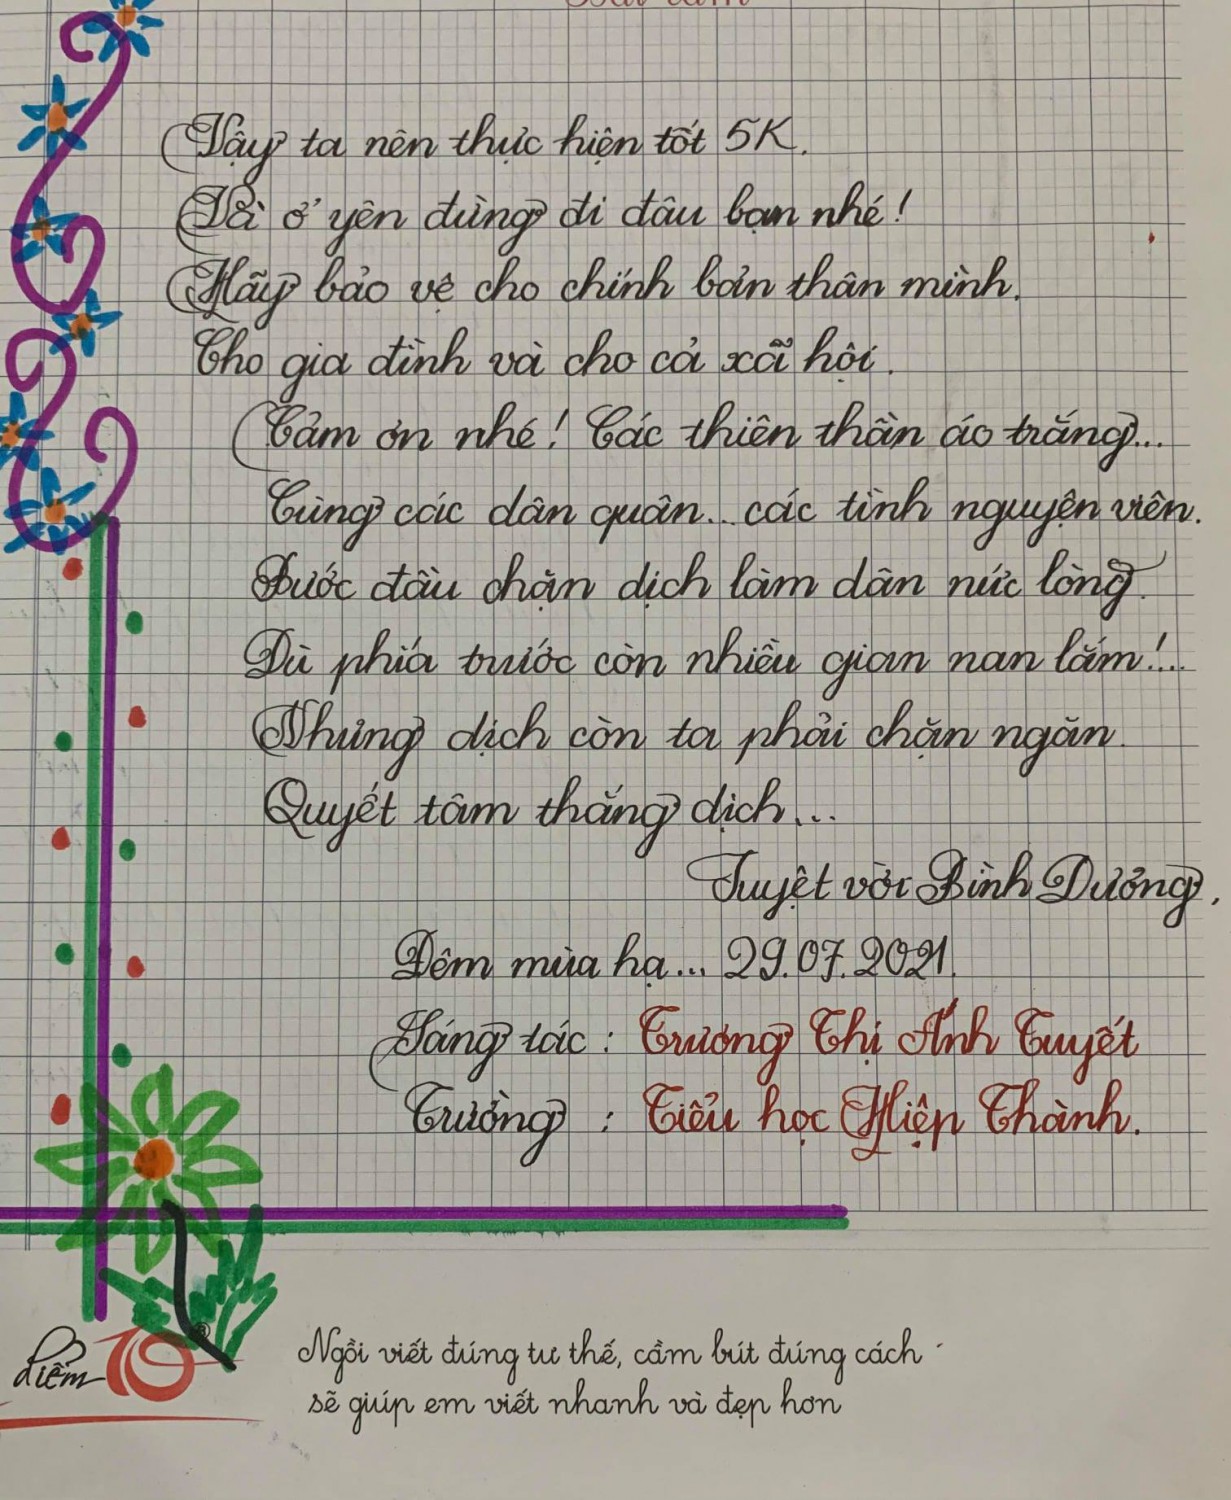 Vậy ta nên thực hiện tốt 5K.
Và ở yên đừng đi đâu bạn nhé!
Hãy bảo vệ cho chính bản thân mình.
Cho gia đình và cho cả xã hội.
Cảm ơn nhé! Các thiên thần áo trắng...
Cùng các dân quân... các tình nguyện viên.
Bước đầu chặn dịch làm dân nức lòng.
Dù phía trước còn nhiều gian nan lắm!...
Nhưng dịch còn ta phải chặn ngăn.
Quyết tâm thắng dịch...
Tuyệt vời Bình Dương.
Đêm mùa hạ... 29.07.2021.
Sáng tác : Trương Thị Ánh Tuyết
Trường : Tiểu học Hiệp Thành.
điểm 10
Ngồi viết đúng tư thế, cầm bút đúng cách
sẽ giúp em viết nhanh và đẹp hơn